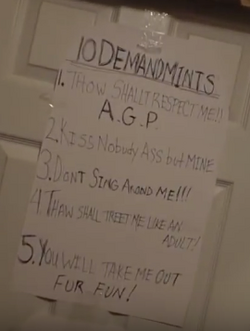 10 DEMANDMINTS
1. THOW SHALLT RESPECT ME!!
A.G.P.
2. KISS NOBUDY ASS BUT MINE
3. DONT SING AROND ME!!!
4. THAW SHALL TREET ME LIKE AN
ADULT!
5. YOU WILL TAKE ME OUT
FUR FUN!